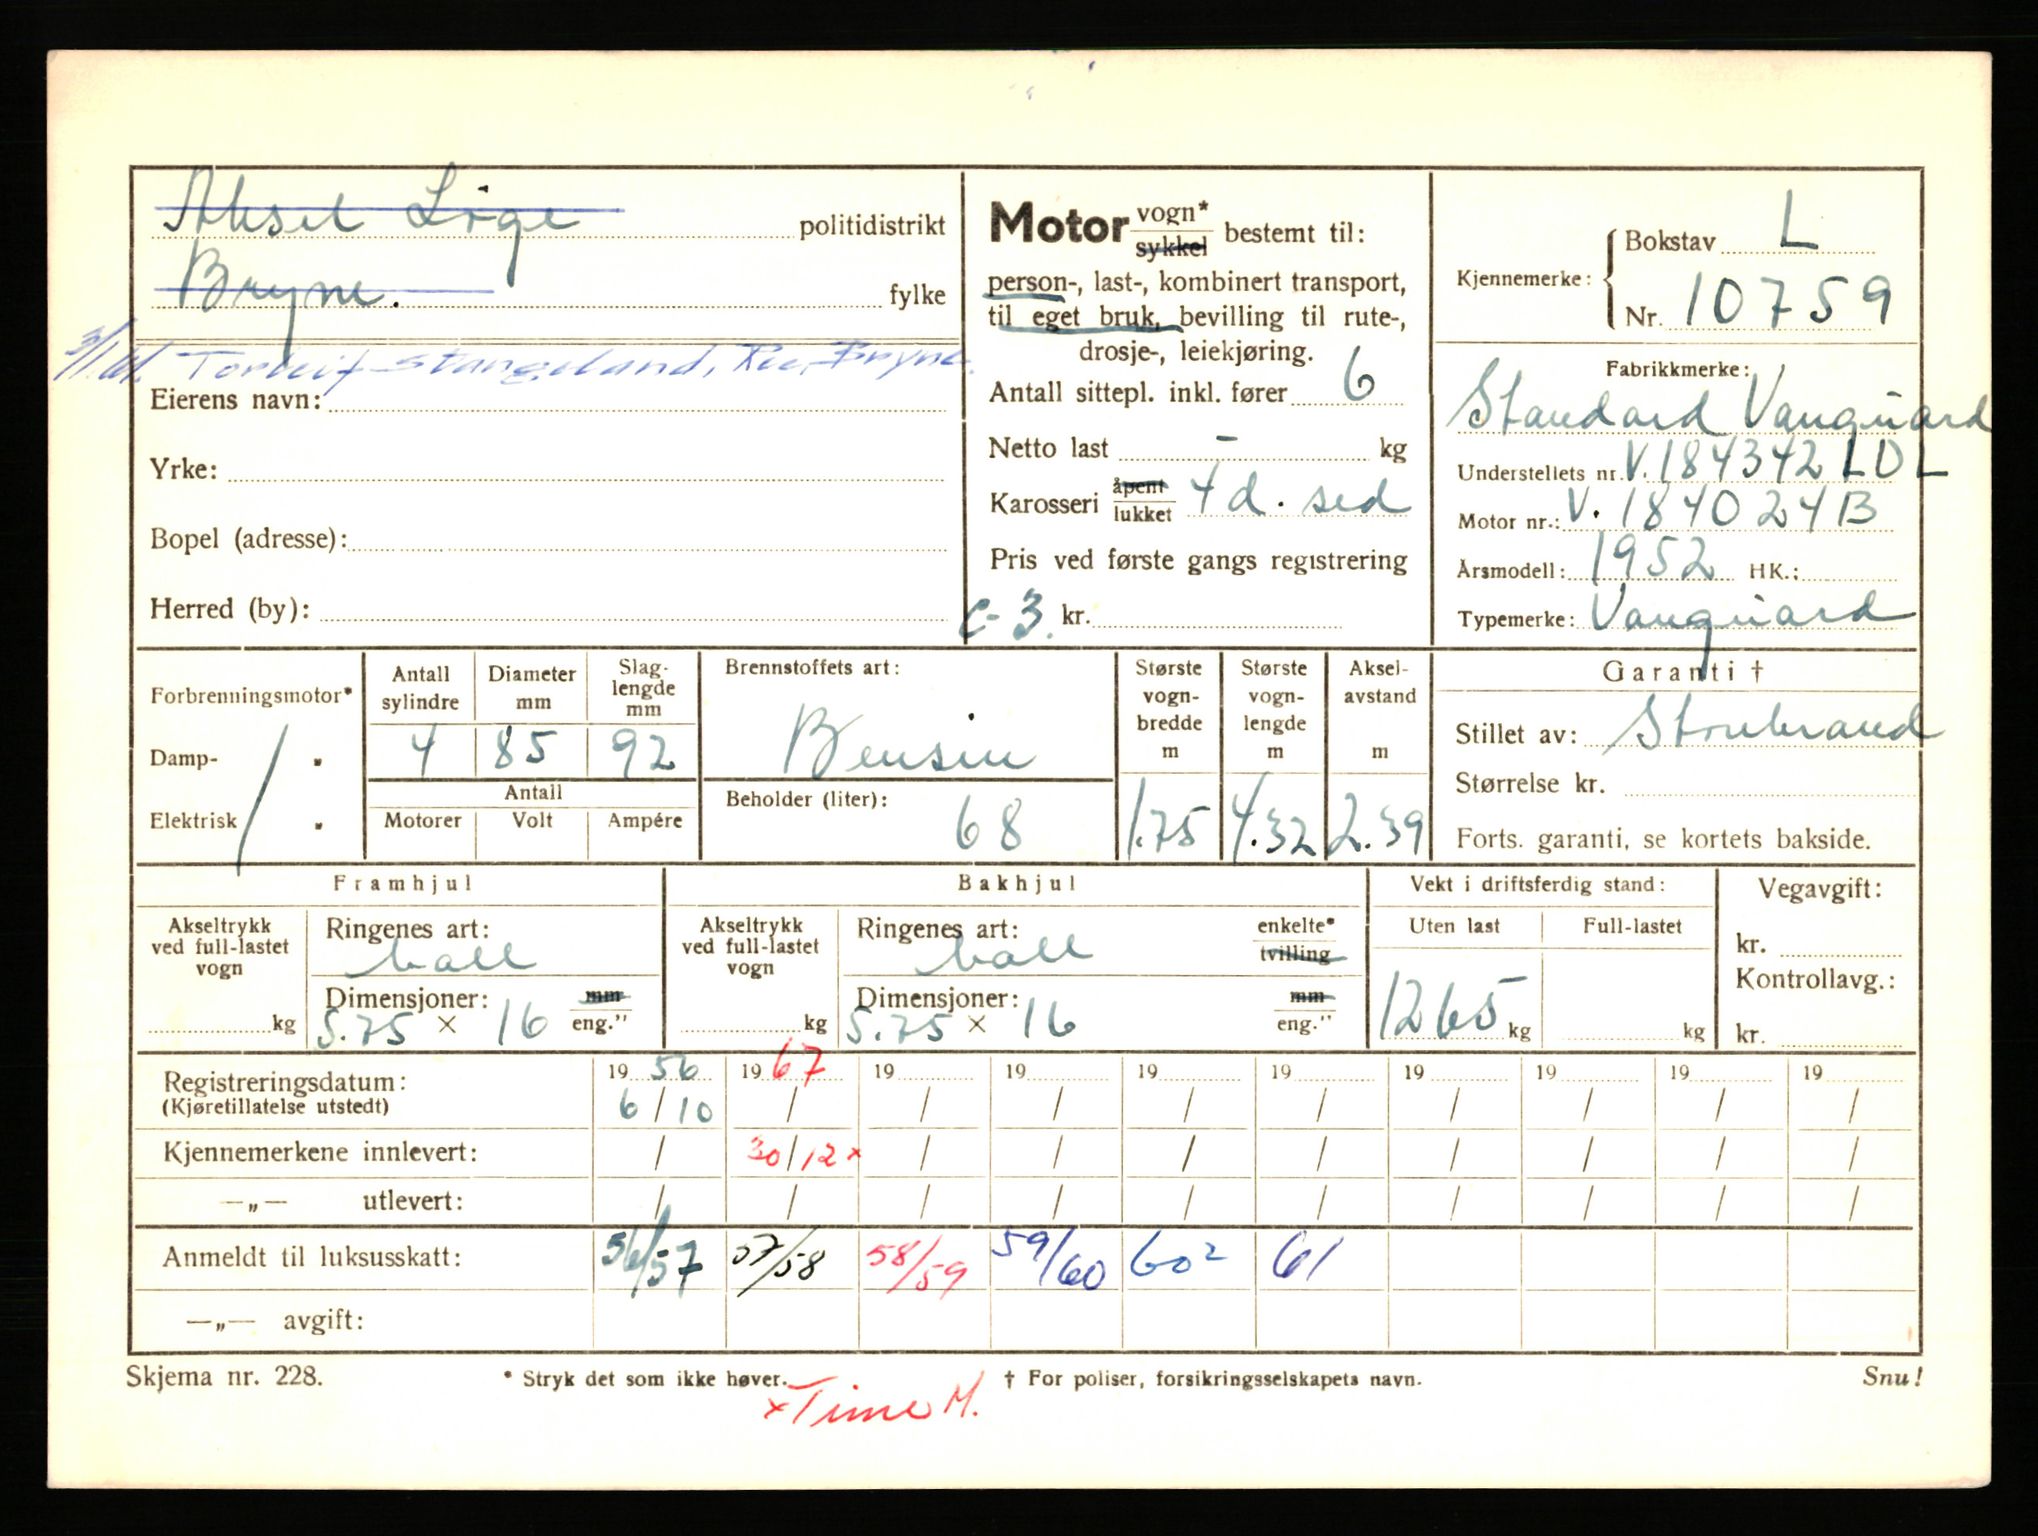 Aksel Lige politidistrikt
Bryne. fylke
Torleif Stangeland, Ree, Bryne.
Eierens navn:
Yrke:
Bopel (adresse):
Herred (by):
Motor vogn* sykkel bestemt til:
person-, last-, kombinert transport,
til eget bruk, bevilling til rute-,
drosje-, leiekjøring.
Antall sittepl. inkl. fører 6
Netto last - kg
Karosseri åpent lukket 4 d. sed
Pris ved første gangs registrering
c-3. kr.
Kjennemerke: Bokstav L
Nr. 10759
Fabrikkmerke:
Standard Vanguard
Understellets nr. V.184342 LDL
Motor nr.: V.184024B
Årsmodell: 1952 HK.:
Typemerke: Vanguard
Forbrenningsmotor*
Damp- "
Elektrisk "
Antall sylindre Diameter mm Slag-lengde mm
4 85 92
Antall
Motorer Volt Ampére
Brennstoffets art:
Bensin
Beholder (liter):
68
Største vogn-bredde m
1.75
Største vogn-lengde m
4.32
Aksel-avstand m
2.39
Garanti †
Stillet av: Storebrand
Størrelse kr.
Forts. garanti, se kortets bakside.
Framhjul
Akseltrykk ved full-lastet vogn
kg
Ringenes art:
ball
Dimensjoner: mm
5.75 × 16 eng."
Bakhjul
Akseltrykk ved full-lastet vogn
kg
Ringenes art: enkelte*
ball tvilling
Dimensjoner: mm
5.75 × 16 eng."
Vekt i driftsferdig stand:
Uten last Full-lastet
1265 kg kg
Vegavgift:
kr.
Kontrollavg.:
kr.
Registreringsdatum: 19 56 19 67 19 19 19 19 19 19 19 19
(Kjøretillatelse utstedt) 6/10 / / / / / / / / /
Kjennemerkene innlevert: / 30/12 x / / / / / / / /
—„— utlevert: / / / / / / / / / /
Anmeldt til luksusskatt: 56/57 57/58 58/59 59/60 60² 61
—„— avgift:
Skjema nr. 228. * Stryk det som ikke høver. † For poliser, forsikringsselskapets navn. Snu!
x Time M.